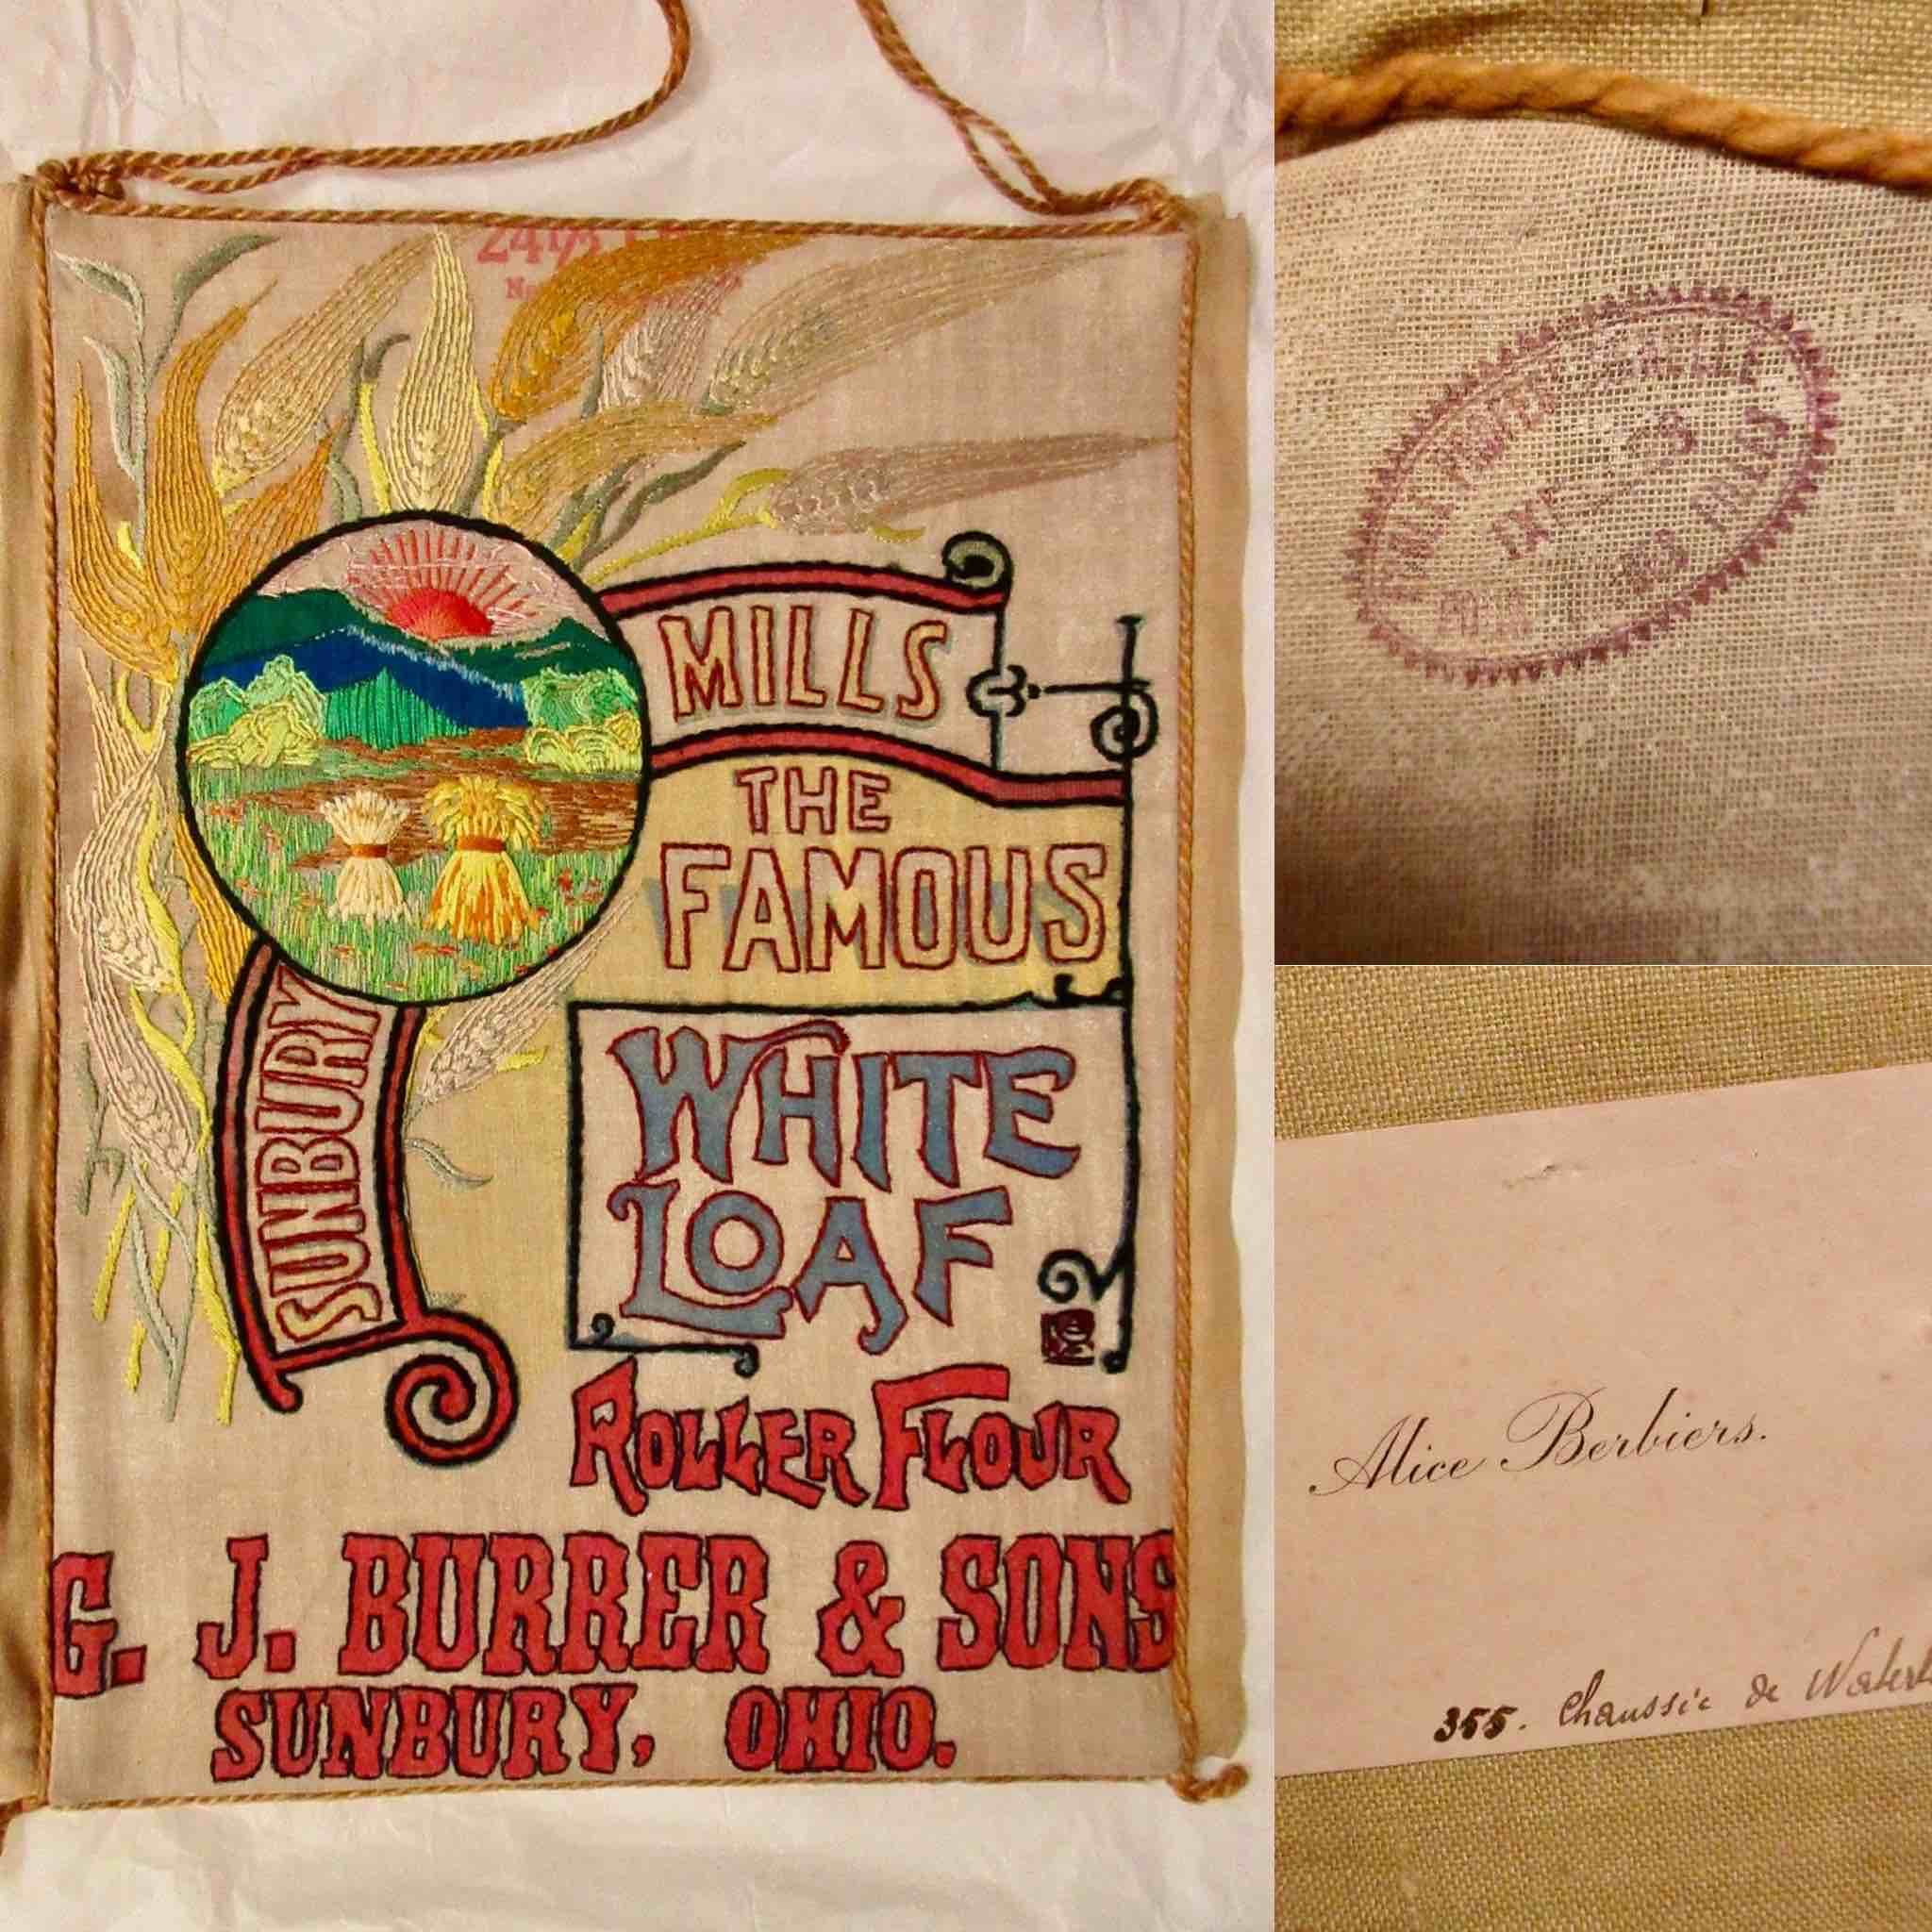 24½
MILLS
THE
FAMOUS
SUNBURY
WHITE
LOAF
ROLLER FLOUR
G. J. BURRER & SONS
SUNBURY, OHIO.
Alice Berbiers.
355. Chaussée de